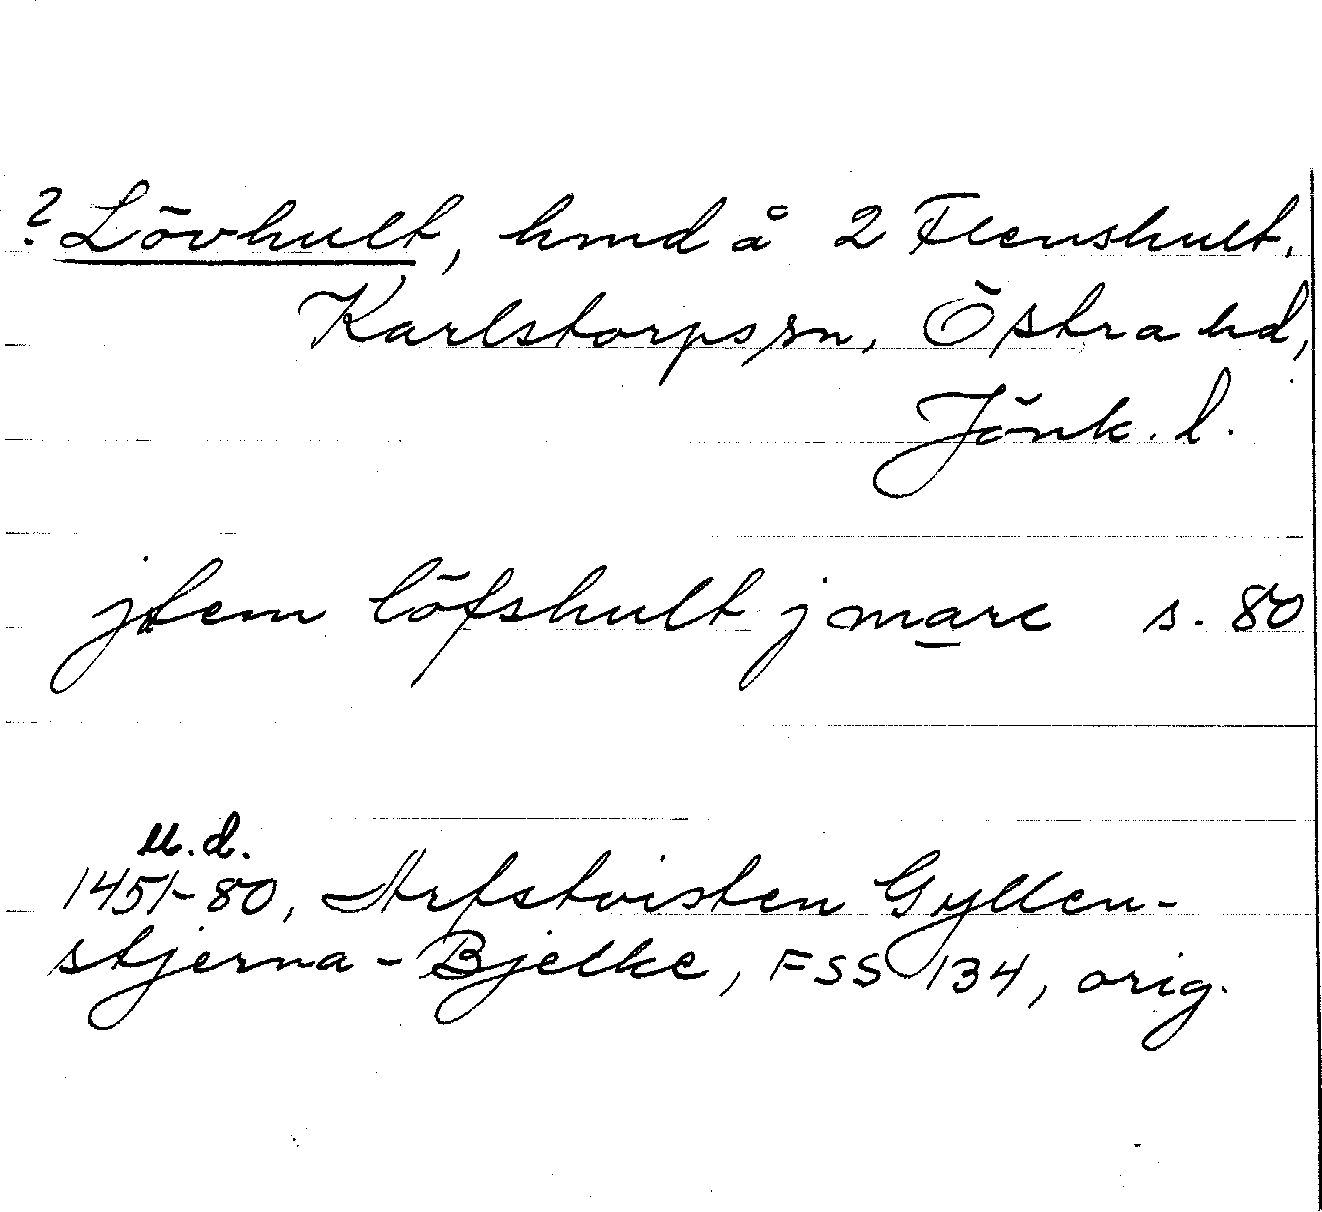 ? Lövhult, hmd å 2 Flenshult.
Karlstorps sn, Östra hd,
Jönk. l.
jtem löfshult j marc s. 80
u.d.
1451-80, Arfstvisten Gyllen-
stjerna - Bjelke, FSS 134, orig.